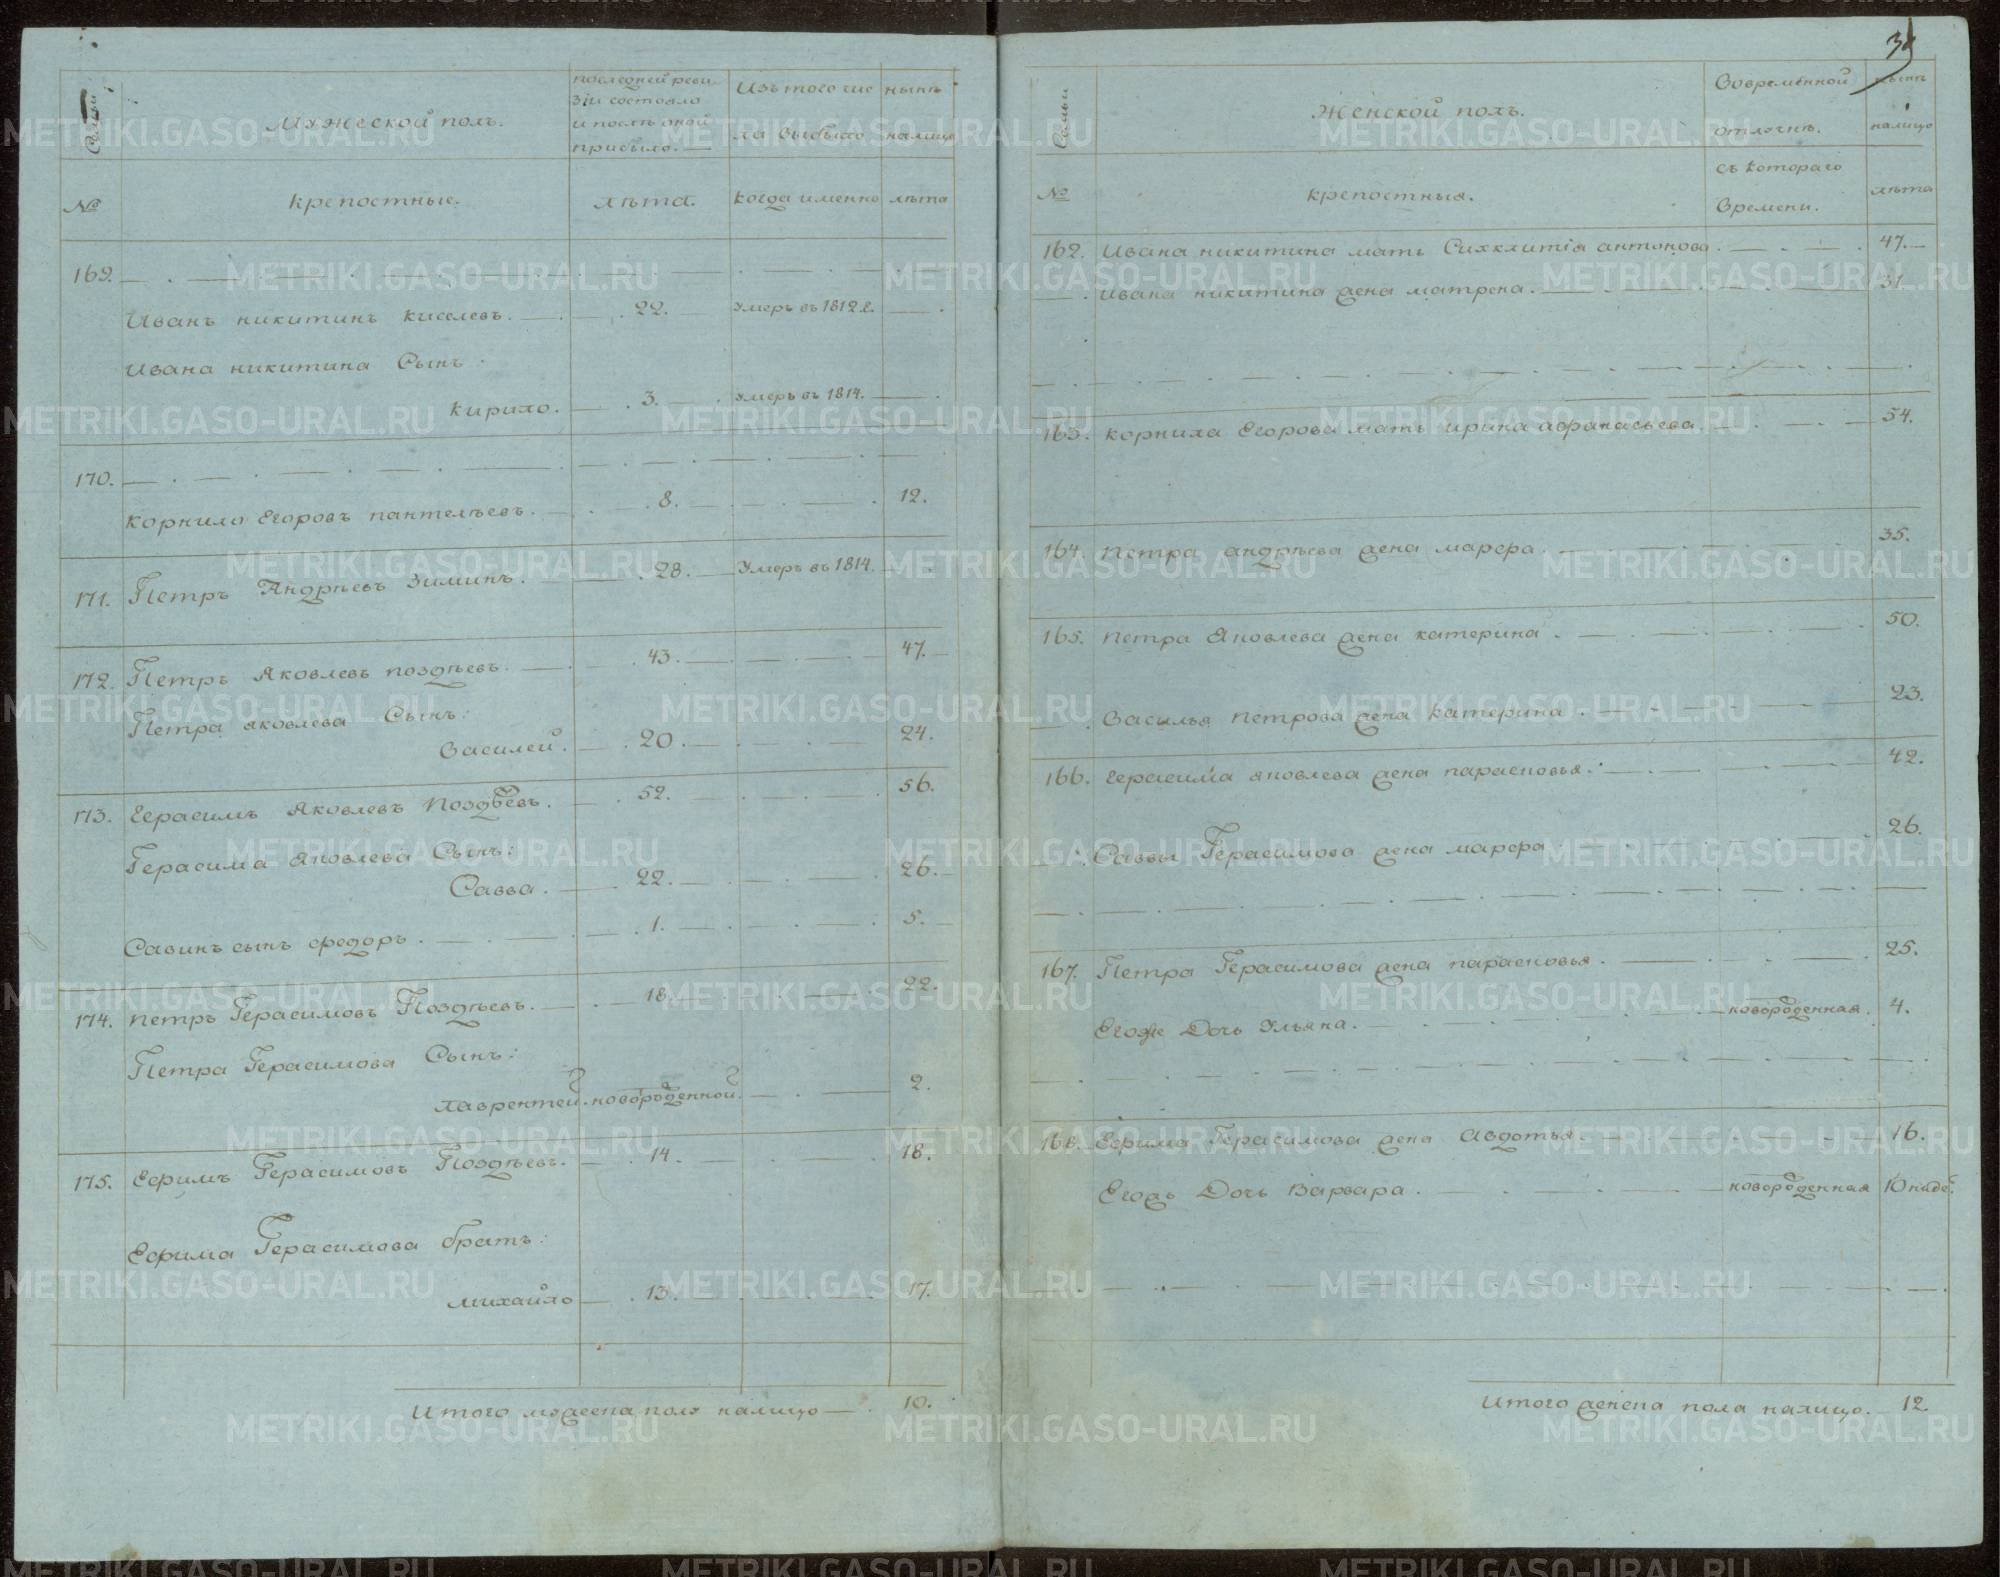 Семьи
Мужеской полъ.
последней реви
зіи состояло
и послѣ оной
прибыло.
Изъ того чис
ла выбыло
нынѣ
налицо
№
крепостные.
лѣта.
когда именно
лѣта
169.
Иванъ никитинъ киселевъ. 22. Умеръ въ 1812 г.
Ивана никитина Сынъ
кирило. 3. Умеръ въ 1814.
170.
корнило Егоровъ пантелѣевъ. 8. 12.
171. Петръ Андрѣевъ Зиминъ. 28. Умеръ въ 1814.
172. Петръ Яковлевъ поздѣевъ. 43. 47.
Петра яковлева Сынъ:
Василей. 20. 24.
173. Герасимъ Яковлевъ Поздѣевъ. 52. 56.
Герасима Яковлева Сынъ:
Савва. 22. 26.
Савинъ сынъ федоръ. 1. 5.
174. петръ Герасимовъ Поздѣевъ. 18. 22.
Петра Герасимова Сынъ:
лаврентей. новорожденной. 2.
175. Ефимъ Герасимовъ Поздѣевъ. 14. 18.
Ефима Герасимова братъ:
михайло 13. 17.
Итого мужеска полу налицо 10.
Семьи
Женской полъ.
Вовременной
отлучкѣ.
нынѣ
налицо
№
крепостныя.
съ котораго
времени.
лѣта
162. Ивана никитина мать Сихклитія антонова. 47.
Ивана никитина жена матрена. 31.
163. корнила Егорова мать ирина афанасьева. 54.
164. Петра андрѣева жена марфа. 35.
165. петра Яковлева жена катерина. 50.
Василья петрова жена катерина. 23.
166. Герасима яковлева жена парасковья. 42.
Саввы Герасимова жена марфа. 26.
167. Петра Герасимова жена парасковья. 25.
Егоже Дочь Ульяна. новорожденная. 4.
168. Ефима Герасимова жена Авдотья. 16.
Егожъ Дочь Варвара. новорожденная 10 нѣде.
Итого женска пола налицо. 12.
METRIKI.GASO-URAL.RU